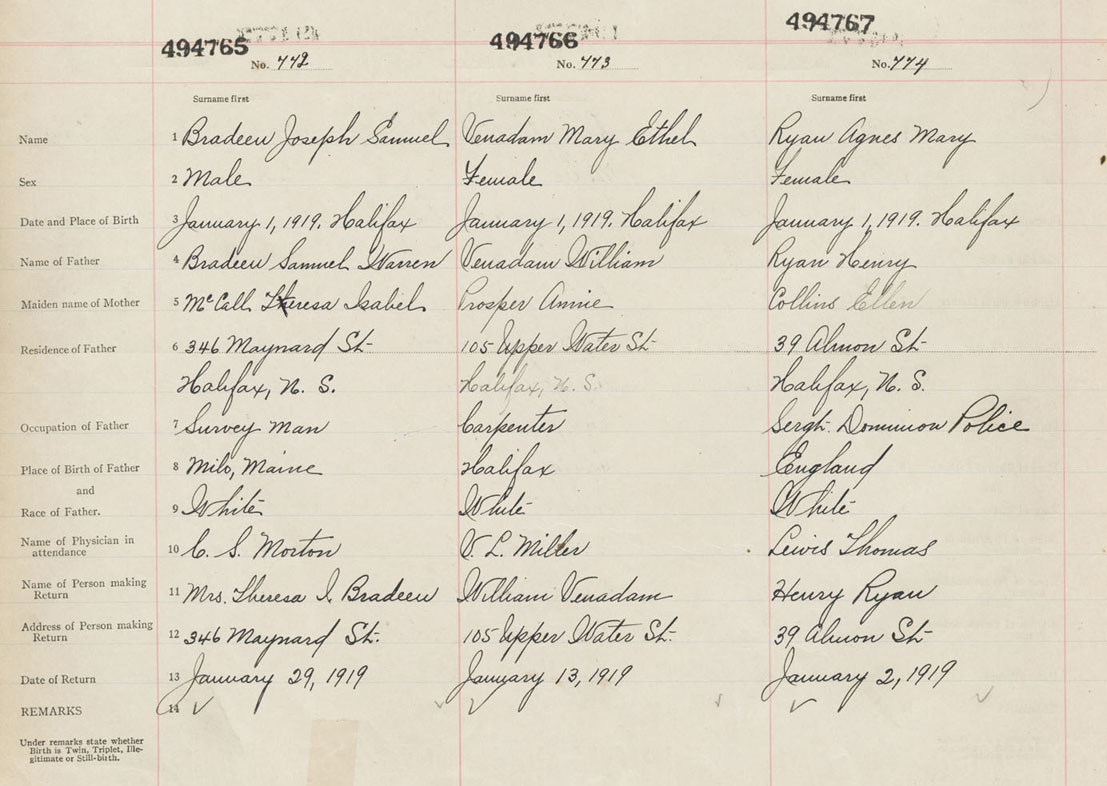 494765 494766 494767
No. 772 No. 773 No. 774
Surname first Surname first Surname first
Name 1 Bradeen Joseph Samuel Venadam Mary Ethel Ryan Agnes Mary
Sex 2 Male Female Female
Date and Place of Birth 3 January 1, 1919. Halifax January 1, 1919. Halifax January 1, 1919. Halifax
Name of Father 4 Bradeen Samuel Warren Venadam William Ryan Henry
Maiden name of Mother 5 McCall Theresa Isabel Prosper Annie Collins Ellen
Residence of Father 6 346 Maynard St. 105 Upper Water St. 39 Almon St.
Halifax, N. S. Halifax, N. S. Halifax, N. S.
Occupation of Father 7 Survey man Carpenter Sergt. Dominion Police
Place of Birth of Father 8 Milo, Maine Halifax England
and
Race of Father. 9 White White White
Name of Physician in
attendance 10 C. S. Morton V. L. Miller Lewis Thomas
Name of Person making
Return 11 Mrs. Theresa I. Bradeen William Venadam Henry Ryan
Address of Person making
Return 12 346 Maynard St. 105 Upper Water St. 39 Almon St.
Date of Return 13 January 29, 1919 January 13, 1919 January 2, 1919
REMARKS 14
Under remarks state whether
Birth is Twin, Triplet, Ille-
gitimate or Still-birth.